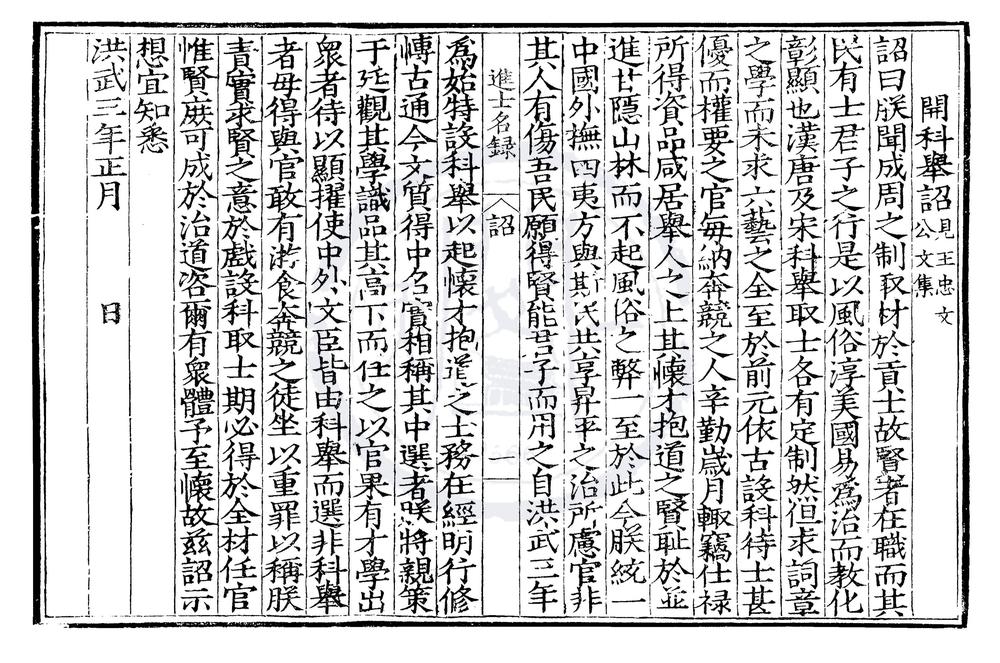 開科舉詔 見王忠文公文集
詔曰朕聞成周之制取材於貢士故賢者在職而其
民有士君子之行是以風俗淳美國易為治而教化
彰顯也漢唐及宋科舉取士各有定制然但求詞章
之學而未求六藝之全至於前元依古設科待士甚
優而權要之官每納奔競之人辛勤歲月輙竊仕祿
所得資品咸居舉人之上其懷才抱道之賢耻於並
進甘隱山林而不起風俗之弊一至於此今朕統一
中國外撫四夷方與斯民共享昇平之治所慮官非
其人有傷吾民願得賢能君子而用之自洪武三年
進士名録 詔 一
為始特設科舉以起懷才抱道之士務在經明行修
愽古通今文質得中名實相稱其中選者朕將親策
于廷觀其學識品其高下而任之以官果有才學出
衆者待以顯擢使中外文臣皆由科舉而選非科舉
者毋得與官敢有游食奔競之徒坐以重罪以稱朕
責實求賢之意於戲設科取士期必得於全材任官
惟賢庶可成於治道咨爾有衆體予至懷故兹詔示
想宜知悉
洪武三年正月 日